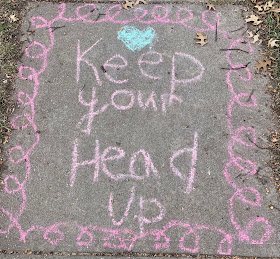 Keep
your
Head
Up